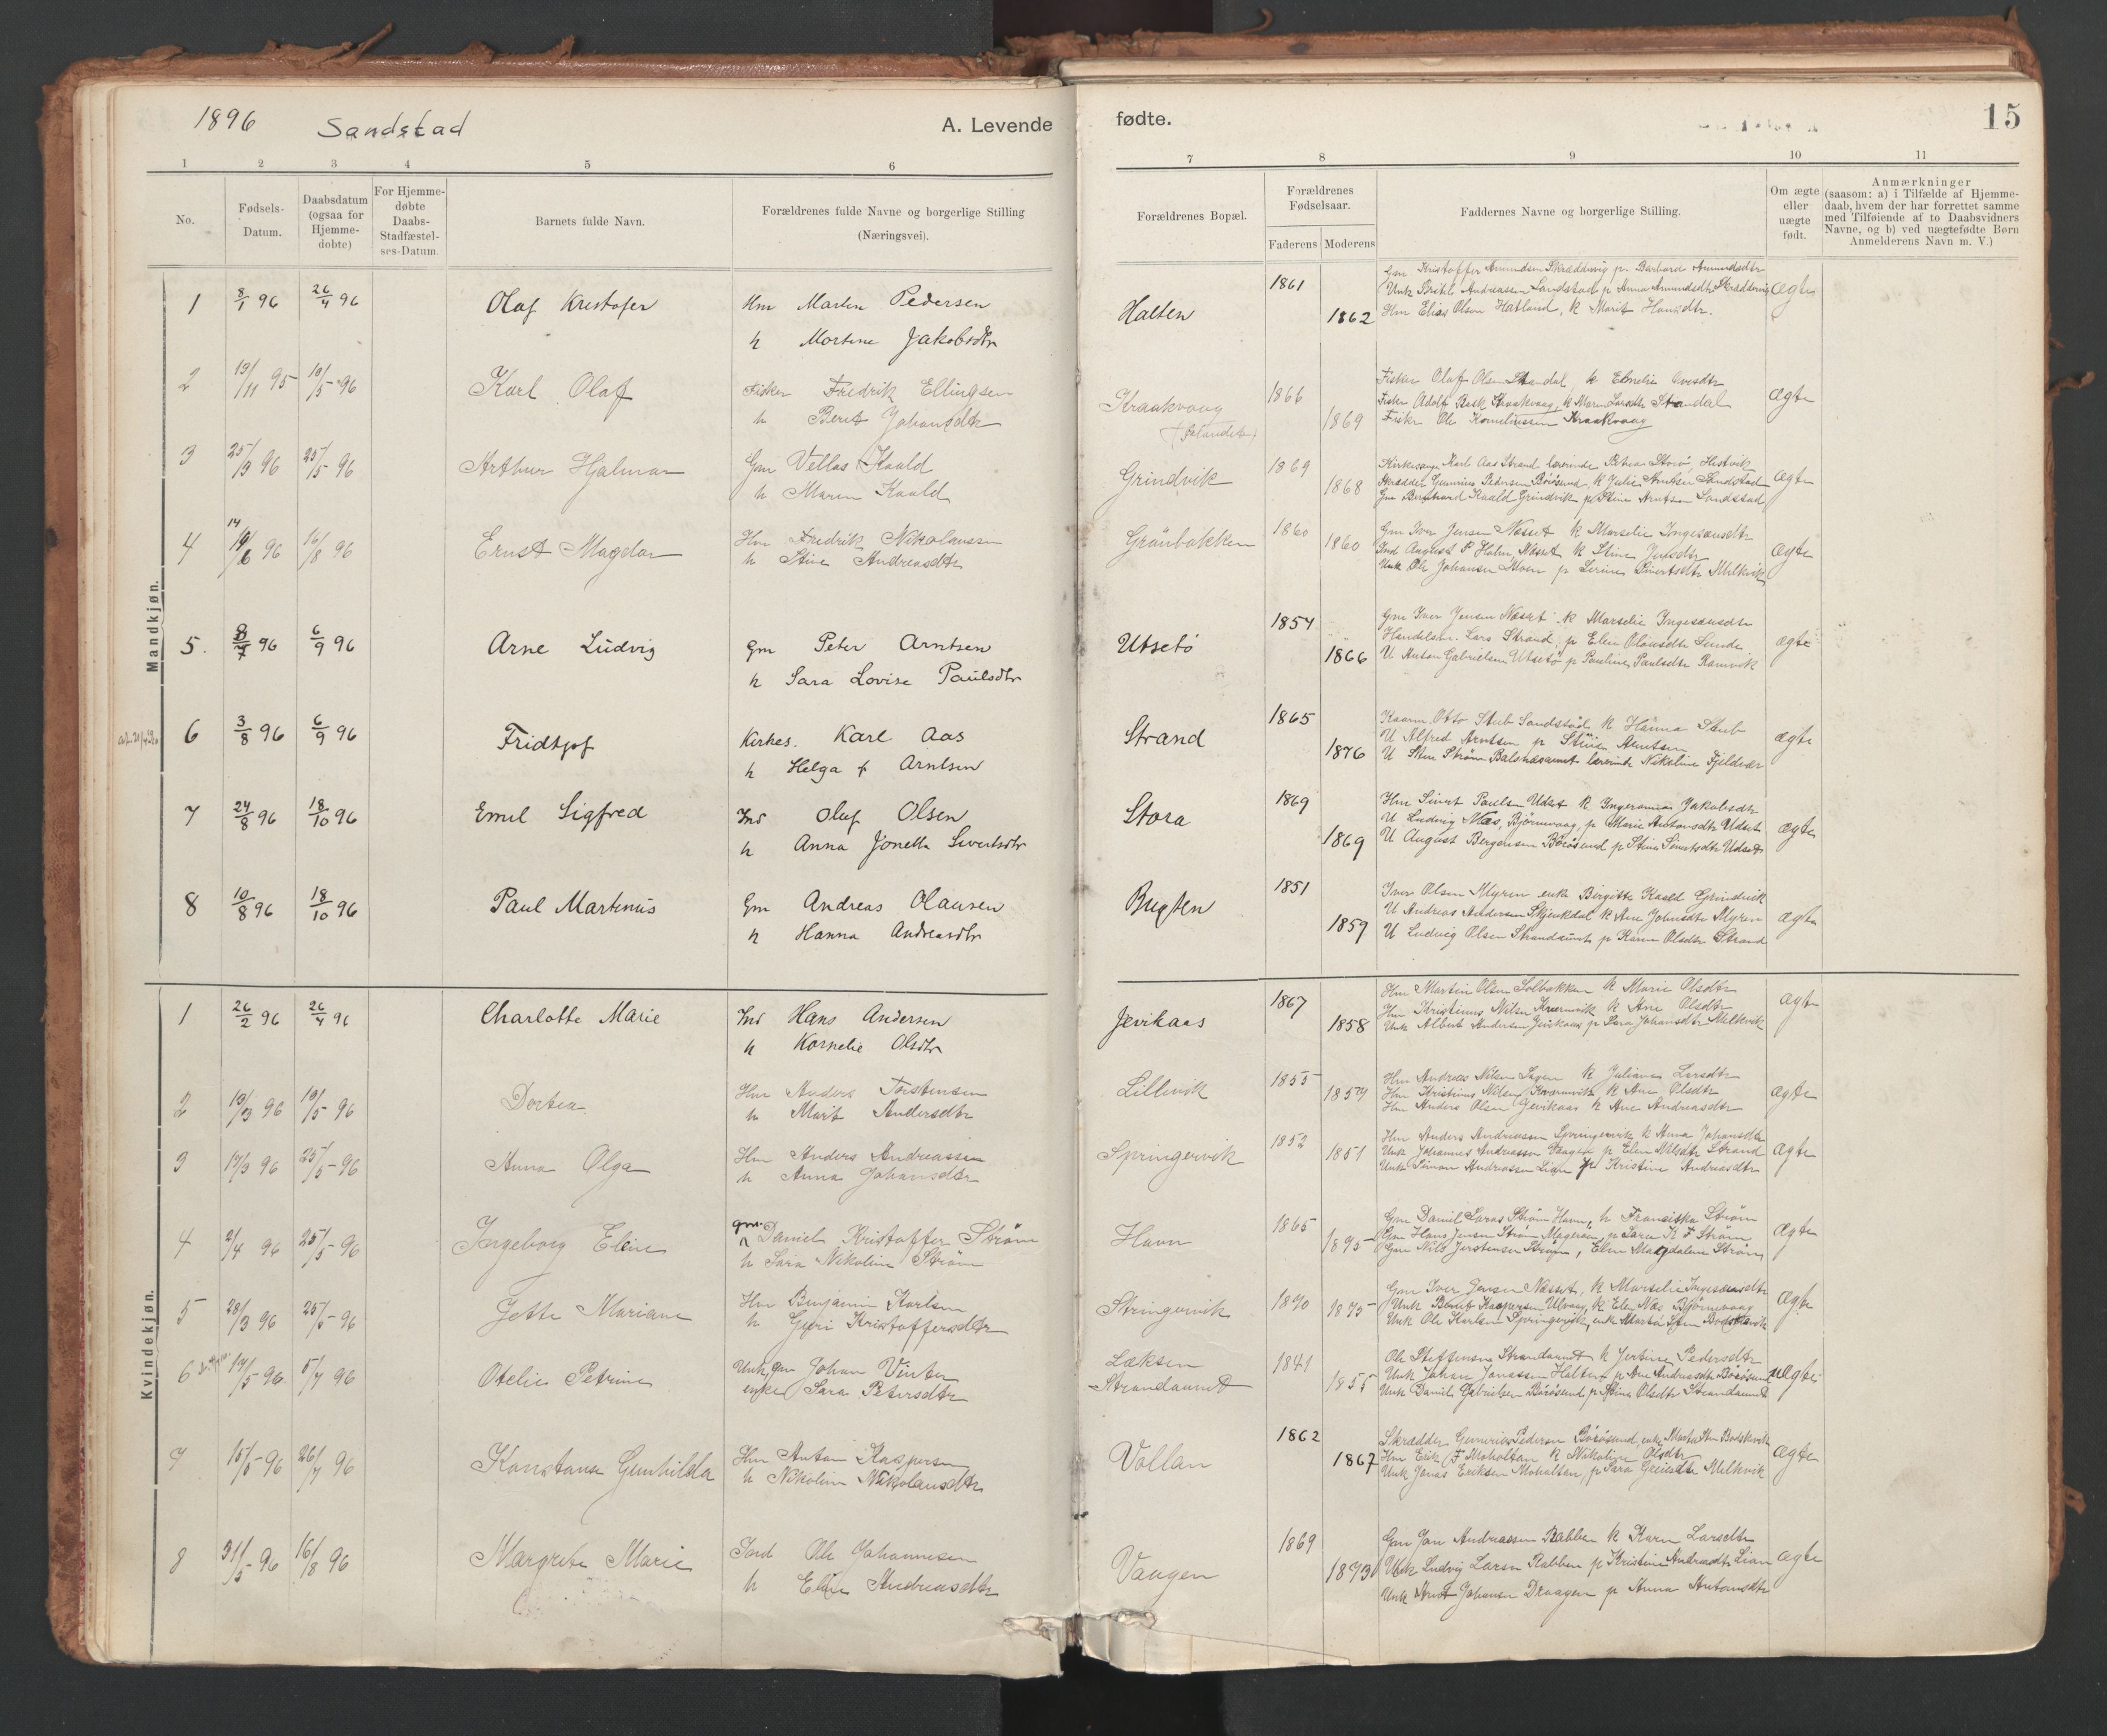 1896 Sandstad A. Levende fødte. 15
1 2 3 4 5 6 7 8 9 10 11
No.
Fødsels-Datum.
Daabsdatum (ogsaa for Hjemme-dobte)
For Hjemme-døbte Daabs-Stadfæstel-ses-Datum.
Barnets fulde Navn.
Forældrenes fulde Navne og borgerlige Stilling (Næringsvei).
Forældrenes Bopæl.
Forældrenes Fødselsaar.
Faderens Moderens
Faddernes Navne og borgerlige Stilling.
Om ægte eller uægte født.
Anmærkninger
(saasom: a) i Tilfælde af Hjemme-
daab, hvem der har forrettet samme
med Tilføiende af to Daabsvidners
Navne, og b) ved uægtefødte Børn
Anmelderens Navn m. V.)
Mandkjøn.
1 8/1 96 26/4 96 Olaf Kristofer Hm Martin Pedersen
h Martine Jakobsdtr
Halten 1861 1862
Gm Kristoffer Amundsen Skrædervig p. Barbara Amundsdtr
Unk Bertil Andreassen Sandstad p Anna Amundsdtr Skrædervig
Hm Elias Olsen Hatland, k Marit Hansdtr.
ægte
2 19/11 95 10/5 96 Karl Olaf Fisker Fredrik Ellingsen
h Berit Johansdtr
Kraakvaag
1866 1869
Fisker Olaf Olsen Strandal, k Emelie
Fisker Adolf Kraakvaag, k Maren Larsdtr Strandal
Fisker Ole Korneliussen Kraakvaag
ægte
3 25/3 96 25/5 96 Arthur Hjalmar Gm Vellas Kaald
h Maren Kaald
Grindvik 1869 1868
Kirkesanger Karl Aas Strand lærerinde Petrea Storø, Hestvik
Skrædder Gunerius Pedersen Børøsund, k Julie Arntsen Sandstad
Gm Bernhard Kaald Grindvik p Stine Arntsen Sandstad
ægte
4 14/6 96 16/8 96 Ernst Magdor Hm Fredrik Nikolaussen
h Stine Andreasdtr
Grønbakken 1860 1860
Gm Iver Jensen Næsset k Marselie Ingesænsdtr
Ind August P Holm Næsset k Stine Julsdtr
Unk Ole Johansen Moen p Serine Sivertsdtr Melkvik
ægte
5. 8/7 96 6/9 96 Arne Ludvig Gm Peter Arntsen
h Sara Lovise Paulsdtr
Utsetø 1854 1866
Gm Iver Jensen Næsset k Marselie Ingesænsdtr
Handelsm. Lars Strand, p Elen Olausdtr Sunde
U Anton Gabrielsen Utsetø p Pauline Paulsdtr Ramvik
ægte
6 3/8 96 6/9 96 Fridtjof Kirkes. Karl Aas
h Helga f Arntsen
Strand 1865 1876
Kaarm. Otto Stub Sandstad k Hanna Stub
U Alfred Arntsen p Stine Arntsen
U Sten Strøm Balsnæsaunet lærerinde Nikoline Fjeldvær
ægte
7 24/8 96 18/10 96 Emil Sigfred Ind Oluf Olsen
h Anna Jonetta Sivertsdtr
Stora 1869 1869
Hm Sivert Paulsen Udset k Ingeranna Jakobsdtr
U Ludvig Næs, Bjørnevaag, p Marie Antonsdtr Udset
U August Bergersen Børøsund p Stina Sivertsdtr Udset
ægte
8 10/8 96 18/10 96 Paul Martinus Gm Andreas Olausen
h Hanna Andreasdtr
Bugten 1851 1859
Iver Olsen Myren enk Birgitte Kaald Grindvik
U Andreas Andersen Skjenkdal k Ane Johnsdtr Myren
U Ludvig Olsen Strandaunet p Karen Olsdtr Strand
ægte
Kvindekjøn.
1 26/2 96 26/4 96 Charlotte Marie Ind Hans Andersen
h Kornelie Olsdtr
Jevikaas 1867 1858
Hm Martin Olsen Solbakken k Marie Olsdtr
Hm Kristinus Nilsen Kværnvik k Ane Olsdtr
Unk Albert Andersen Jevikaas p Sara Johansdtr Melkvik
ægte
2 19/3 96 10/5 96 Dortea Hm Anders Torstensen
h Marit Andersdtr
Lillevik 1855 1854
Hm Andreas Nilsen k Juliane Larsdtr
Hm Kristinus Nilsen Kværnvik k Ane Olsdtr
Hm Anders Olsen Jevikaas k Ane Andreasdtr
ægte
3 17/3 96 25/5 96 Anna Olga Hm Anders Andreassen
h Anna Johansdtr
Springervik 1852 1851
Hm Anders Andreassen Springervik k Anna Johansdtr
Unk Johannes Andreassen Vaagen p Elen Nilsdtr Strand
Unk Simon Andreassen Lian p Kristine Andreasdtr
ægte
4 2/4 96 25/5 96 Ingeborg Eline gm. Daniel Kristoffer Strøm
h Sara Nikoline Strøm
Havn 1865 1875
Gm Daniel Laras Strøm Havn, h Franciska Strøm
Gm Hans Jensen Strøm Magerøen, p Sara K F Strøm
Gm Nils Jerstensen Strøm, Elen Magdalene Strøm
ægte
5 28/3 96 25/5 96 Jette Mariane Hm Benjamin Karlsen
h Guri Kristoffersdtr
Stringervik 1870 1875
Gm Iver Jensen Næsset, k Marselie Ingesænsdtr
Unk Bernt Kaspersen Ulvaag, k Elen Næs Bjørnevaag
Unk Ole Karlsen Springervik, enk Marta Sten Bodskevik
ægte
6 14/5 96 5/7 96 Otelie Petrine Unk, Gm Johan Vinter
enke Sara Petersdtr
Laksen
Strandaunet 1841 1855
Ole Steffensen Strandaunet k Jertine Pedersdtr
Unk Johan Jonassen Halten p Ane Andreasdtr Børøsund
Unk Daniel Gabrielsen Børøsund p Stine Olsdtr Strandaunet
uægte
7 15/5 96 26/7 96 Konstanse Gunhilda Hm Anton Kaspersen
h Nikoline Nikolausdtr
Vollan 1862 1867
Skrædder Gunerius Pedersen Børøsund, enke Marta Sten Bodskevik
Hm Erik F Moholtan k Nikoline Olsdtr
Unk Jonas Eriksen Moholtan, p Sara Melkvik
ægte
8 31/5 96 16/8 96 Margrete Marie Ind Ole Johannesen
h Eline Andreasdtr
Vaagen 1869 1873
Gm Jon Andreassen Rabben k Karen Larsdtr
Unk Ludvig Larsen Rabben p Kristine Andreasdtr Lian
Unk Arnt Johansen Draagen p Anna Antonsdtr
ægte